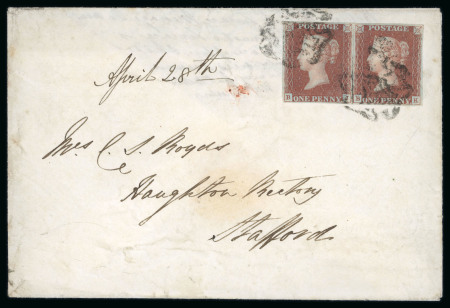 POSTAGE POSTAGE
ONE PENNY ONE PENNY
April 28th
Mrs C. S. Royds
Haughton Rectory
Stafford